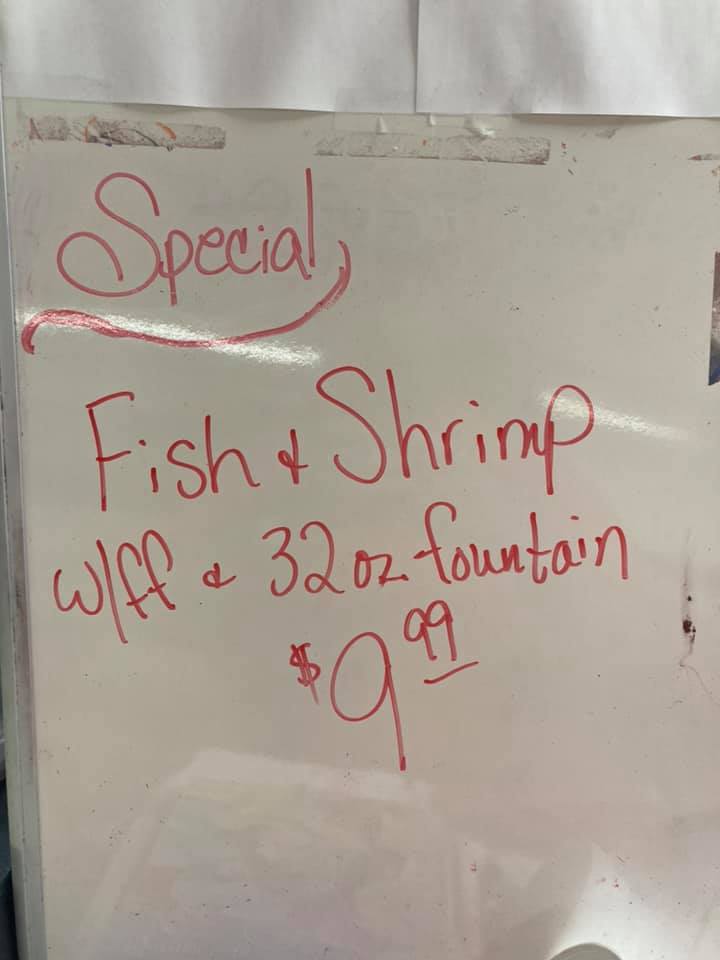 Special
Fish & Shrimp
w/ff & 32oz fountain
$9.99